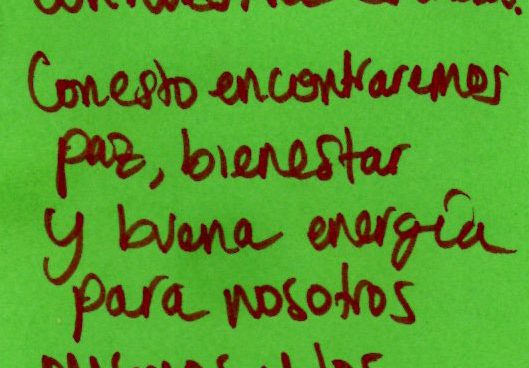 Con esto encontraremos
paz, bienestar
y buena energía
para nosotros